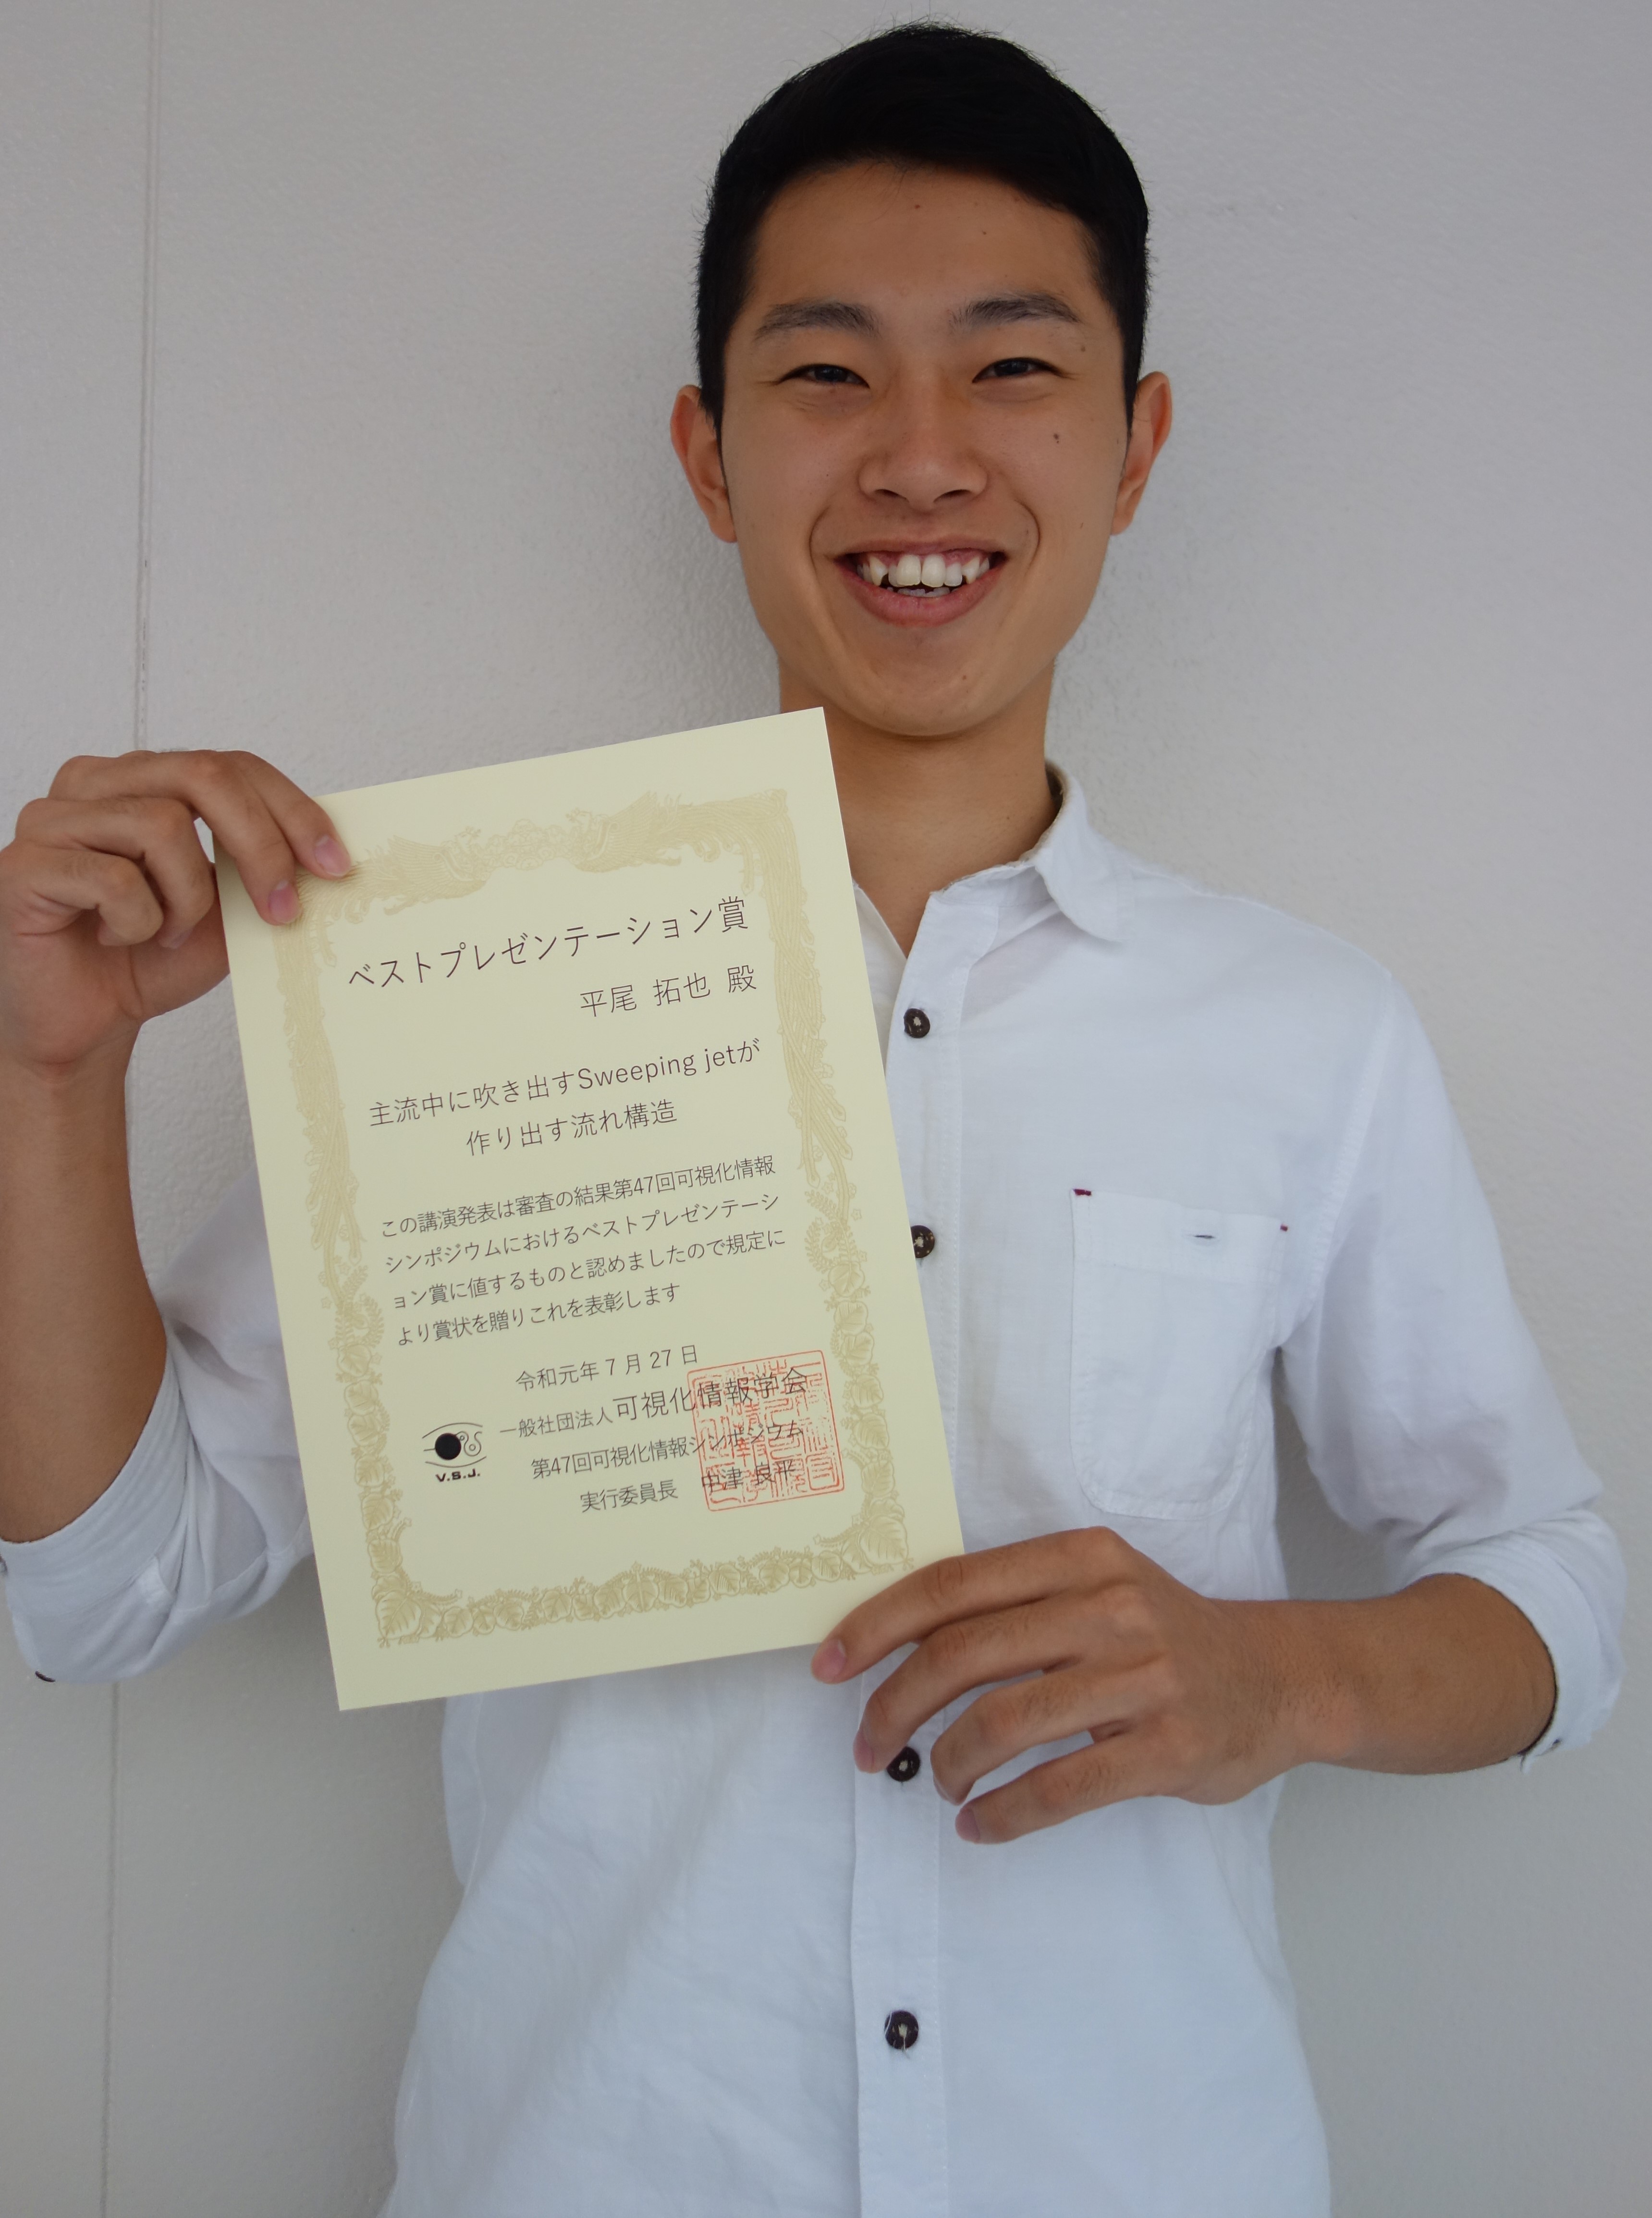 ベストプレゼンテーション賞
平尾 拓也 殿
主流中に吹き出すSweeping jetが
作り出す流れ構造
この講演発表は審査の結果第47回可視化情報
シンポジウムにおけるベストプレゼンテーシ
ョン賞に値するものと認めましたので規定に
より賞状を贈りこれを表彰します
令和元年7月27日
一般社団法人可視化情報学会
V.S.J.
第47回可視化情報シンポジウム
実行委員長 中津 良平